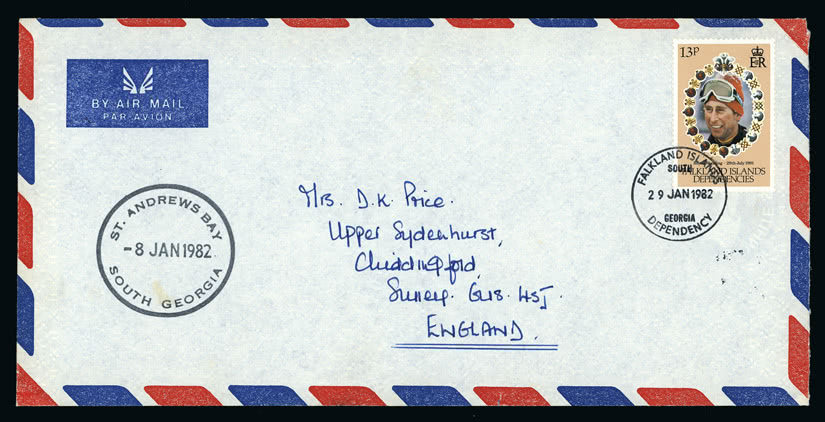 BY AIR MAIL
PAR AVION
13P
E R
29th July 1981
FALKLAND ISLANDS
DEPENDENCIES
FALKLAND ISLANDS
SOUTH
29 JAN 1982
GEORGIA
DEPENDENCY
ST. ANDREWS BAY
-8 JAN 1982
SOUTH GEORGIA
Mr. D.K. Price.
Upper Sydenhurst,
Chiddingfold,
Surrey. GU8. 4SJ.
ENGLAND.